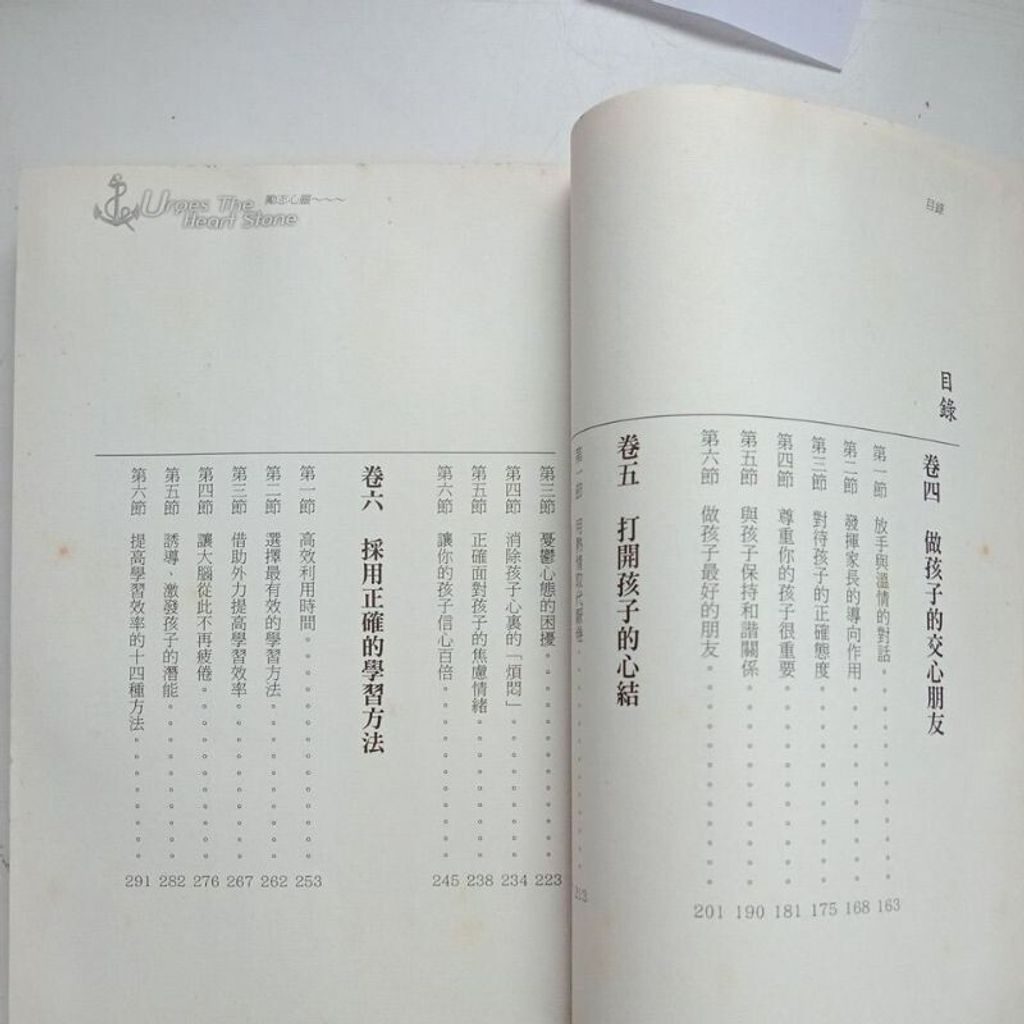 目錄
目錄
卷四 做孩子的交心朋友
第一節 放手與溫情的對話。。。。。。。。。。。163
第二節 發揮家長的導向作用。。。。。。。。。。168
第三節 對待孩子的正確態度。。。。。。。。。。175
第四節 尊重你的孩子很重要。。。。。。。。。。181
第五節 與孩子保持和諧關係。。。。。。。。。。190
第六節 做孩子最好的朋友。。。。。。。。。。。201
卷五 打開孩子的心結
第一節 用熱情取代厭倦。。。。。。。。。。213
Urges The Heart Stone
第三節 憂鬱心態的困擾。。。。。。。。。。。。223
第四節 消除孩子心裏的「煩悶」。。。。。。。。234
第五節 正確面對孩子的焦慮情緒。。。。。。。。238
第六節 讓你的孩子信心百倍。。。。。。。。。。245
卷六 採用正確的學習方法
第一節 高效利用時間。。。。。。。。。。。。。253
第二節 選擇最有效的學習方法。。。。。。。。。262
第三節 借助外力提高學習效率。。。。。。。。。267
第四節 讓大腦從此不再疲倦。。。。。。。。。。276
第五節 誘導、激發孩子的潛能。。。。。。。。。282
第六節 提高學習效率的十四種方法。。。。。。。291